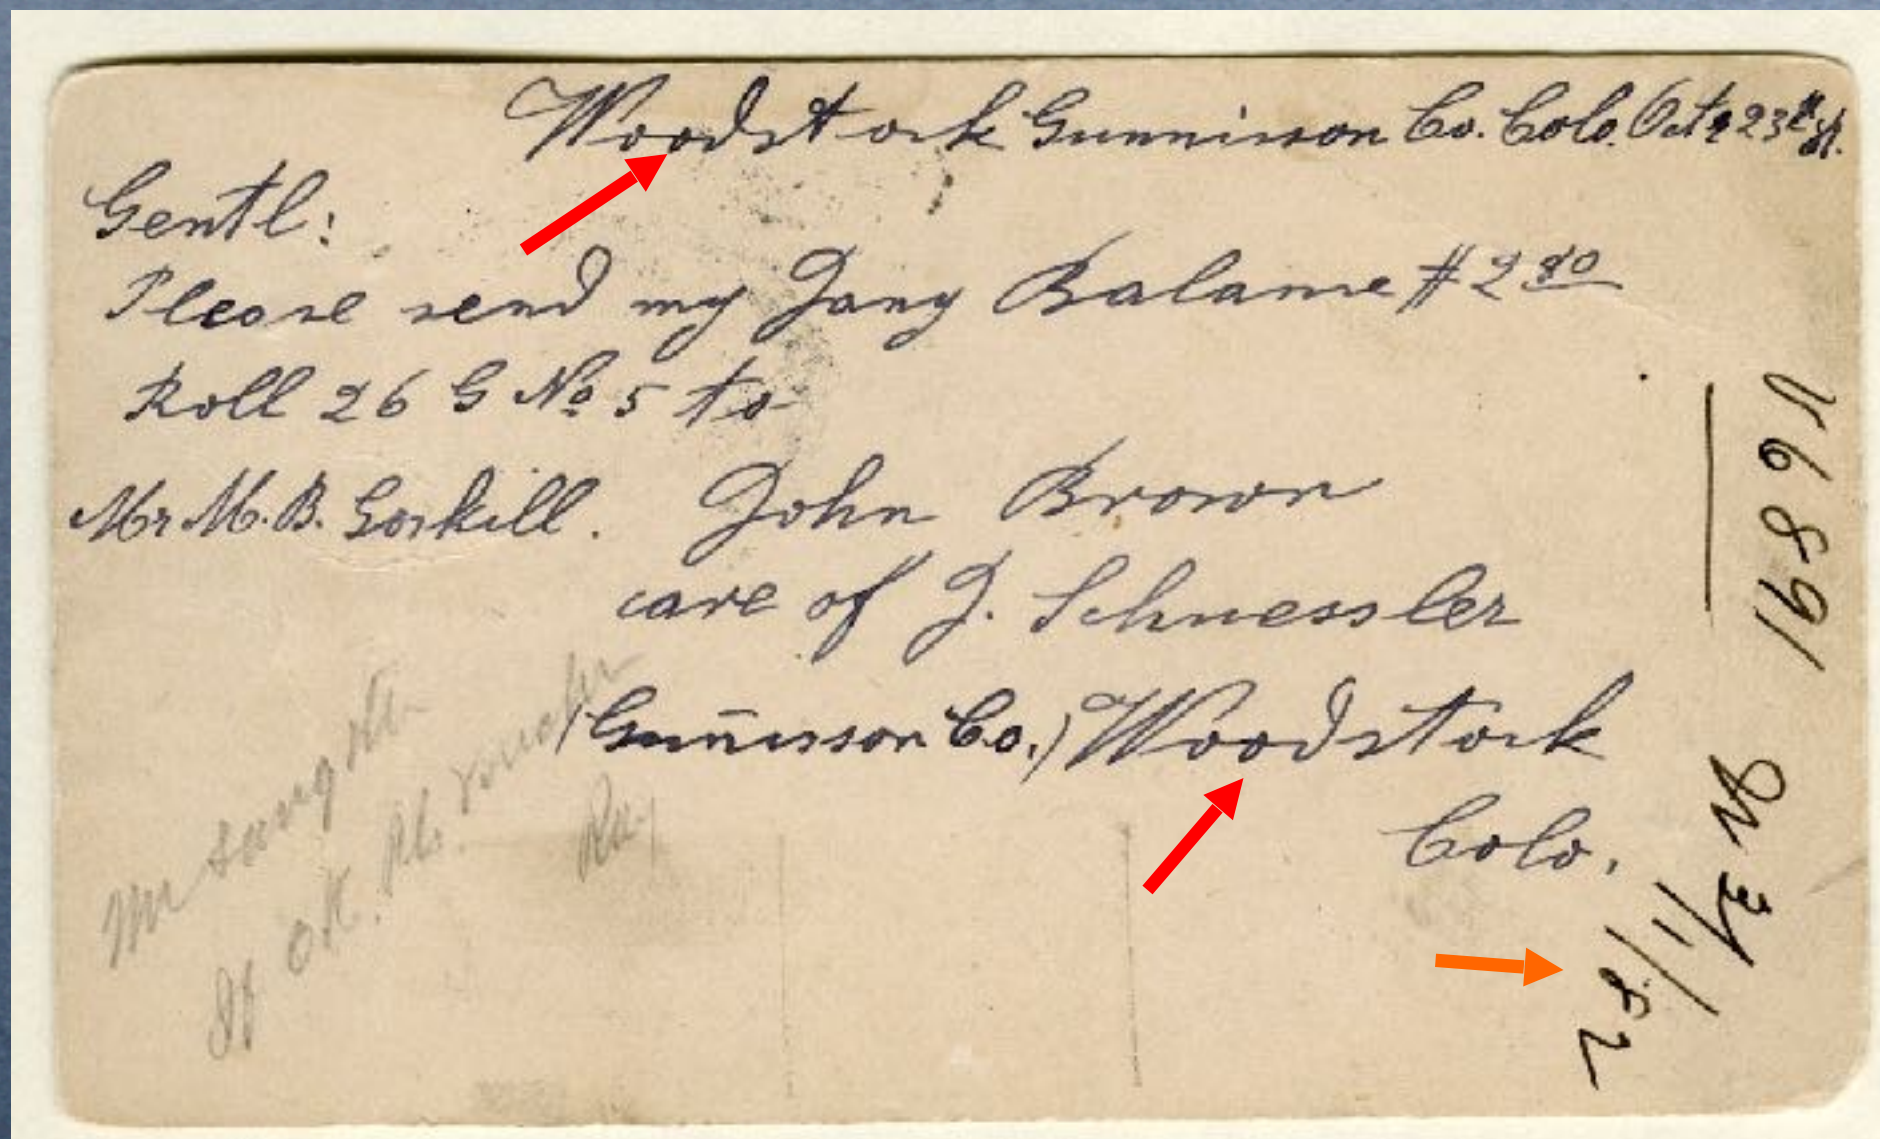 Woodstock Gunnisson Co. Colo. Oct. 23th
Gentl:
Please send my Jany Balance #2 80
Roll 26 G No 5 to
Mr M. B. Gaskill. John Brown
care of J. Schuessler
(Gunnisson Co.) Woodstock
Colo.
V6891
W 3/1/82
Mr
If OK. Pl. voucher